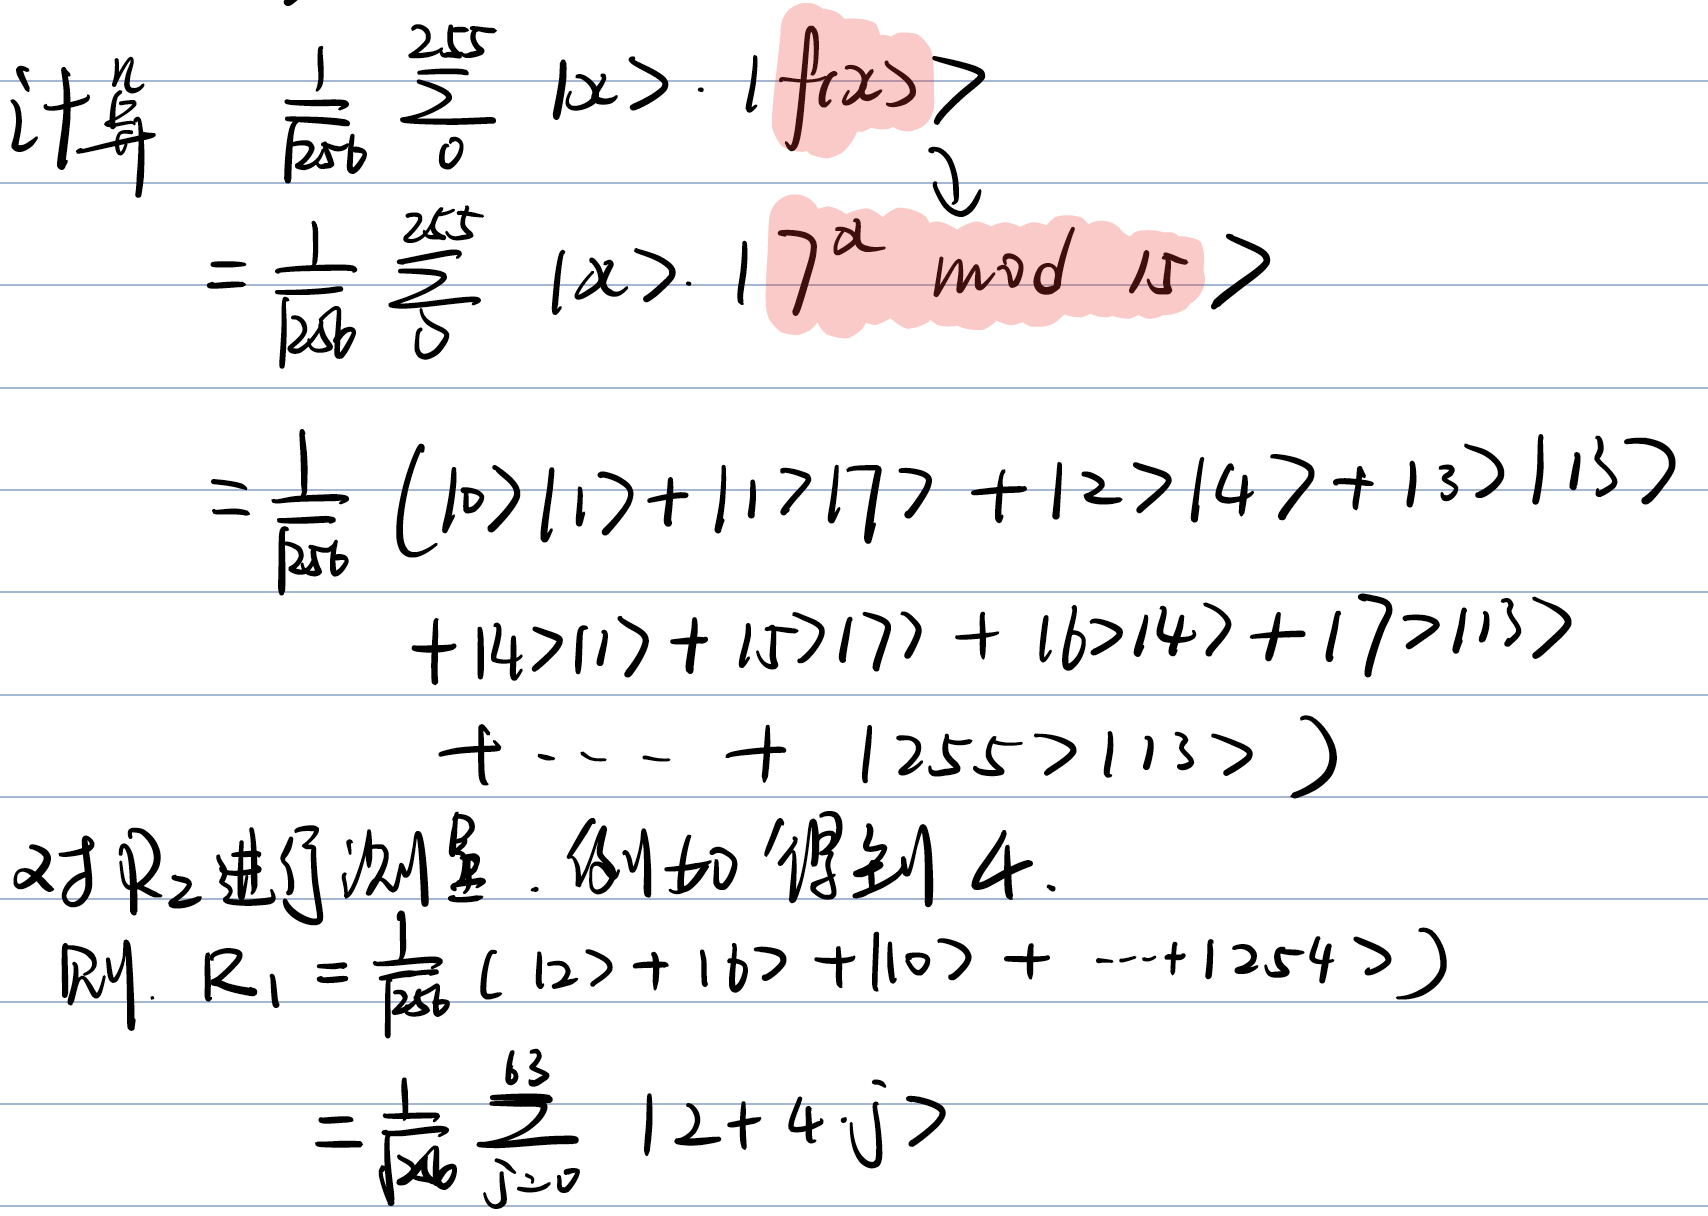 计算 1/√256 ∑_0^255 |x>·|f(x)>
= 1/√256 ∑_0^255 |x>·|7^x mod 15>
= 1/√256 (|0>|1>+|1>|7> +|2>|4>+|3>|13>
+|4>|1>+|5>|7>+|6>|4>+|7>|13>
+ ---- + |255>|13>)
对R₂进行测量.例如得到4.
则. R₁ = 1/√256 (|2>+|6>+|10>+ ···+|254>)
= 1/√256 ∑_{j=0}^63 |2+4·j>